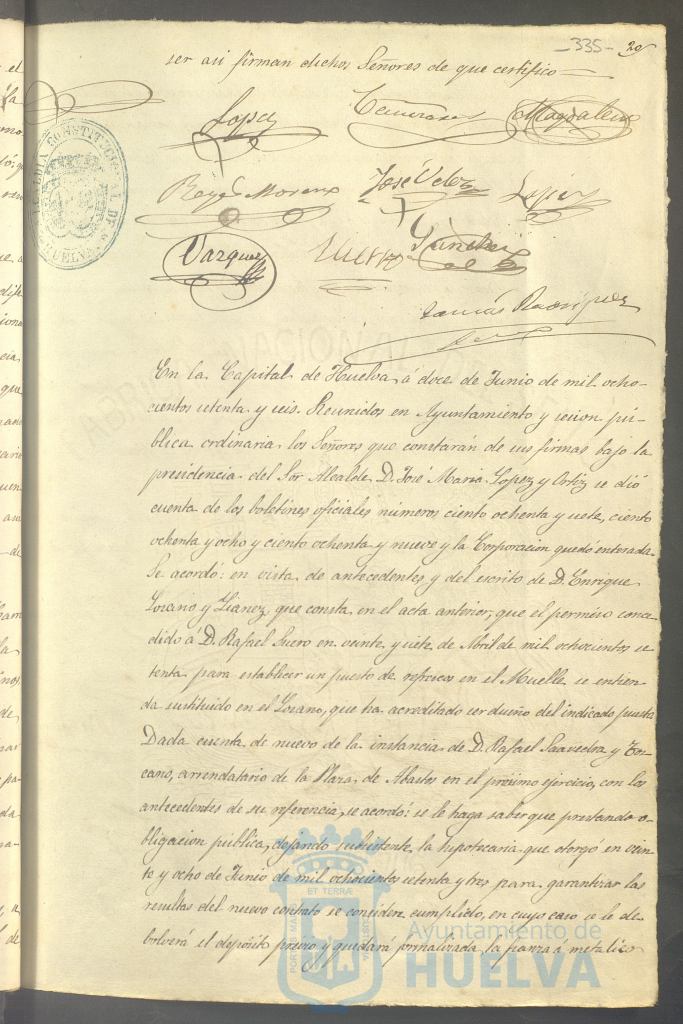 -335- 29
ser asi firman dichos Señores de que certifico
Lopez
Magdalena
Reyes Moreno José Velez Lopez
Vazquez Suero Sanchez
Tomás Rodriguez
ALCALDIA CONSTITUCIONAL DE HUELVA
En la Capital de Huelva á doce de Junio de mil ocho-
cientos setenta y seis. Reunidos en Ayuntamiento y sesion pú-
blica ordinaria los Señores que constarán de sus firmas bajo la
presidencia del Sor Alcalde D. José Maria Lopez y Ortiz se dió
cuenta de los boletines oficiales números ciento ochenta y siete, ciento
ochenta y ocho y ciento ochenta y nueve y la Corporacion quedó enterada.
Se acordó: en vista de antecedentes y del escrito de D. Enrique
Lozano y Liañez, que consta en el acta anterior, que el permiso conce-
dido á D. Rafael Suero en veinte y siete de Abril de mil ochocientos se-
tenta para establecer un puesto de refrescos en el Muelle se entien-
da sustituido en el Lozano, que ha acreditado ser dueño del indicado puesto
Dada cuenta de nuevo de la instancia de D. Rafael Saavedra y Tos-
cano, arrendatario de la Plaza de Abastos en el próximo ejercicio, con los
antecedentes de su referencia, se acordó: se le haga saber que prestando o-
bligacion pública, dejando subsistente la hipotecaria que otorgó en vein-
te y ocho de Junio de mil ochocientos setenta y tres para garantizar las
resultas del nuevo contrato se considere cumplido, en cuyo caso se le de-
bolverá el depósito previo y quedará formalizada la fianza á metalico
PORTUS MARIS ET TERRAE CUSTODIA
Ayuntamiento de
HUELVA